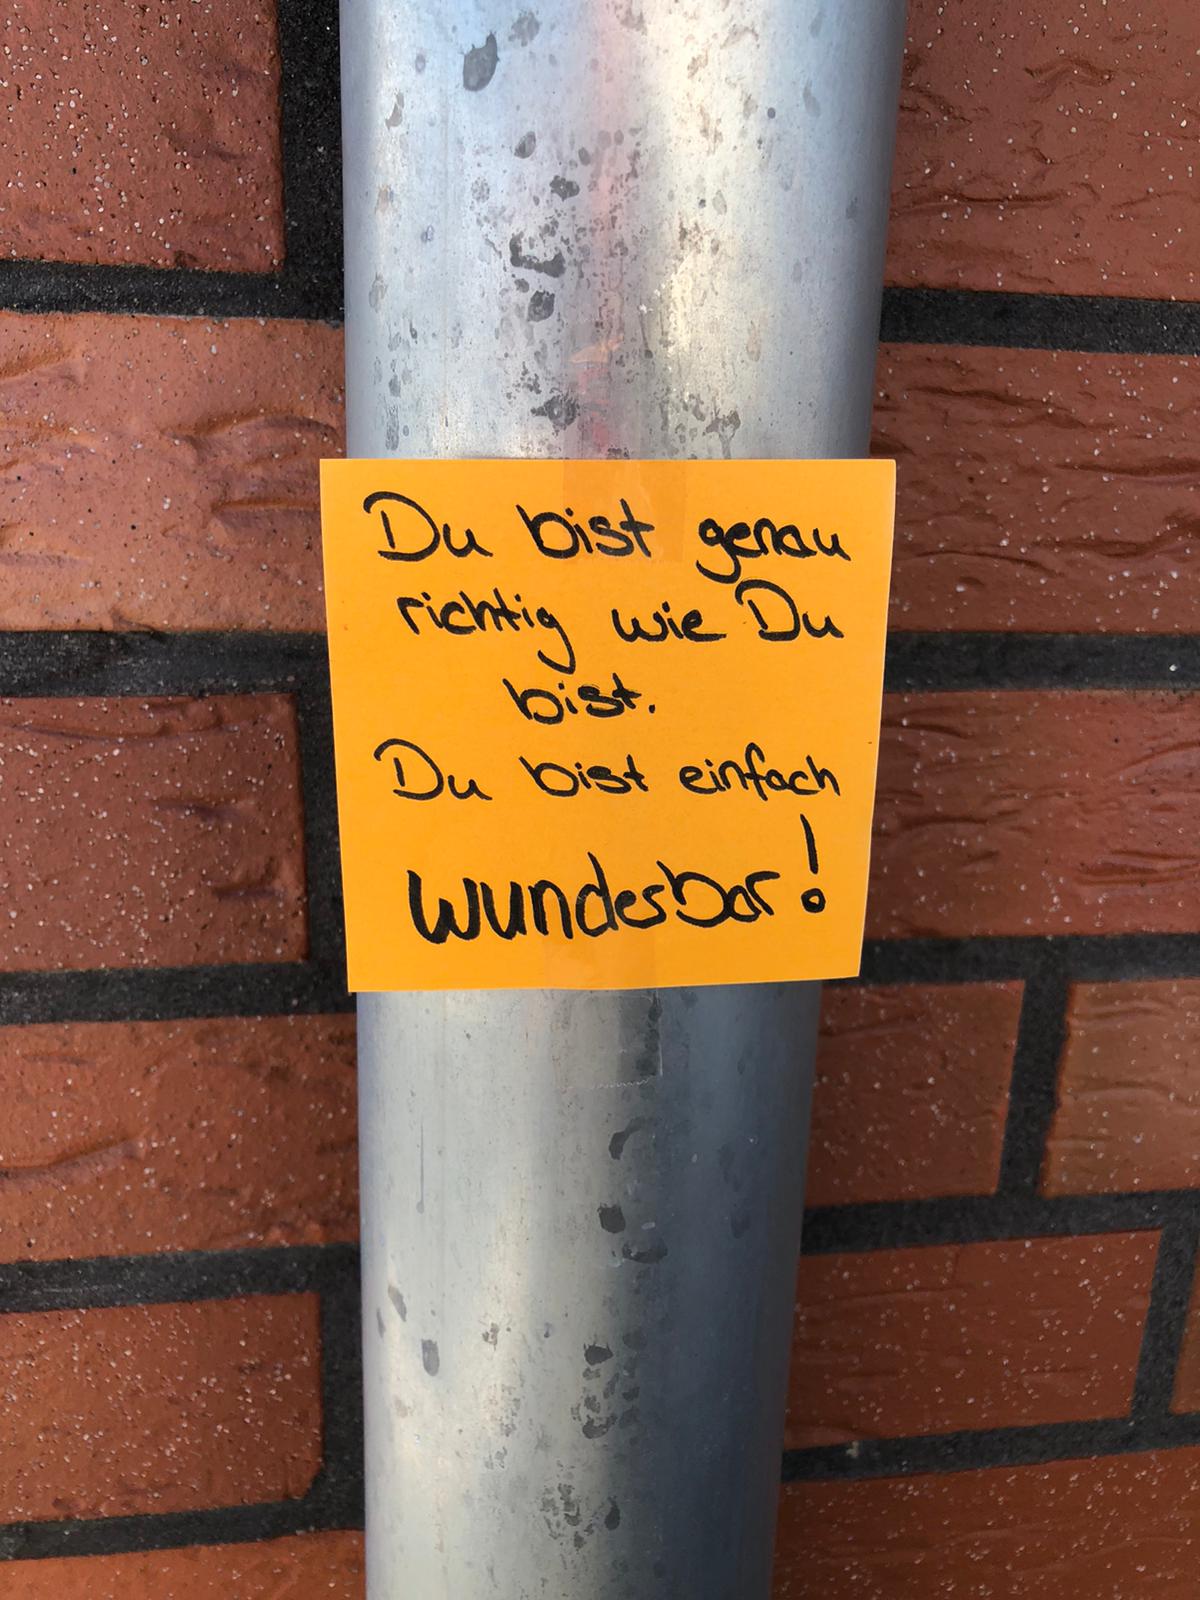 Du bist genau
richtig wie Du
bist.
Du bist einfach
wunderbar!